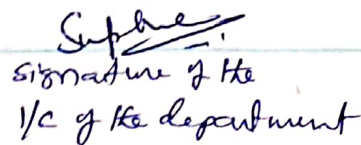 signature of the
I/c of the department